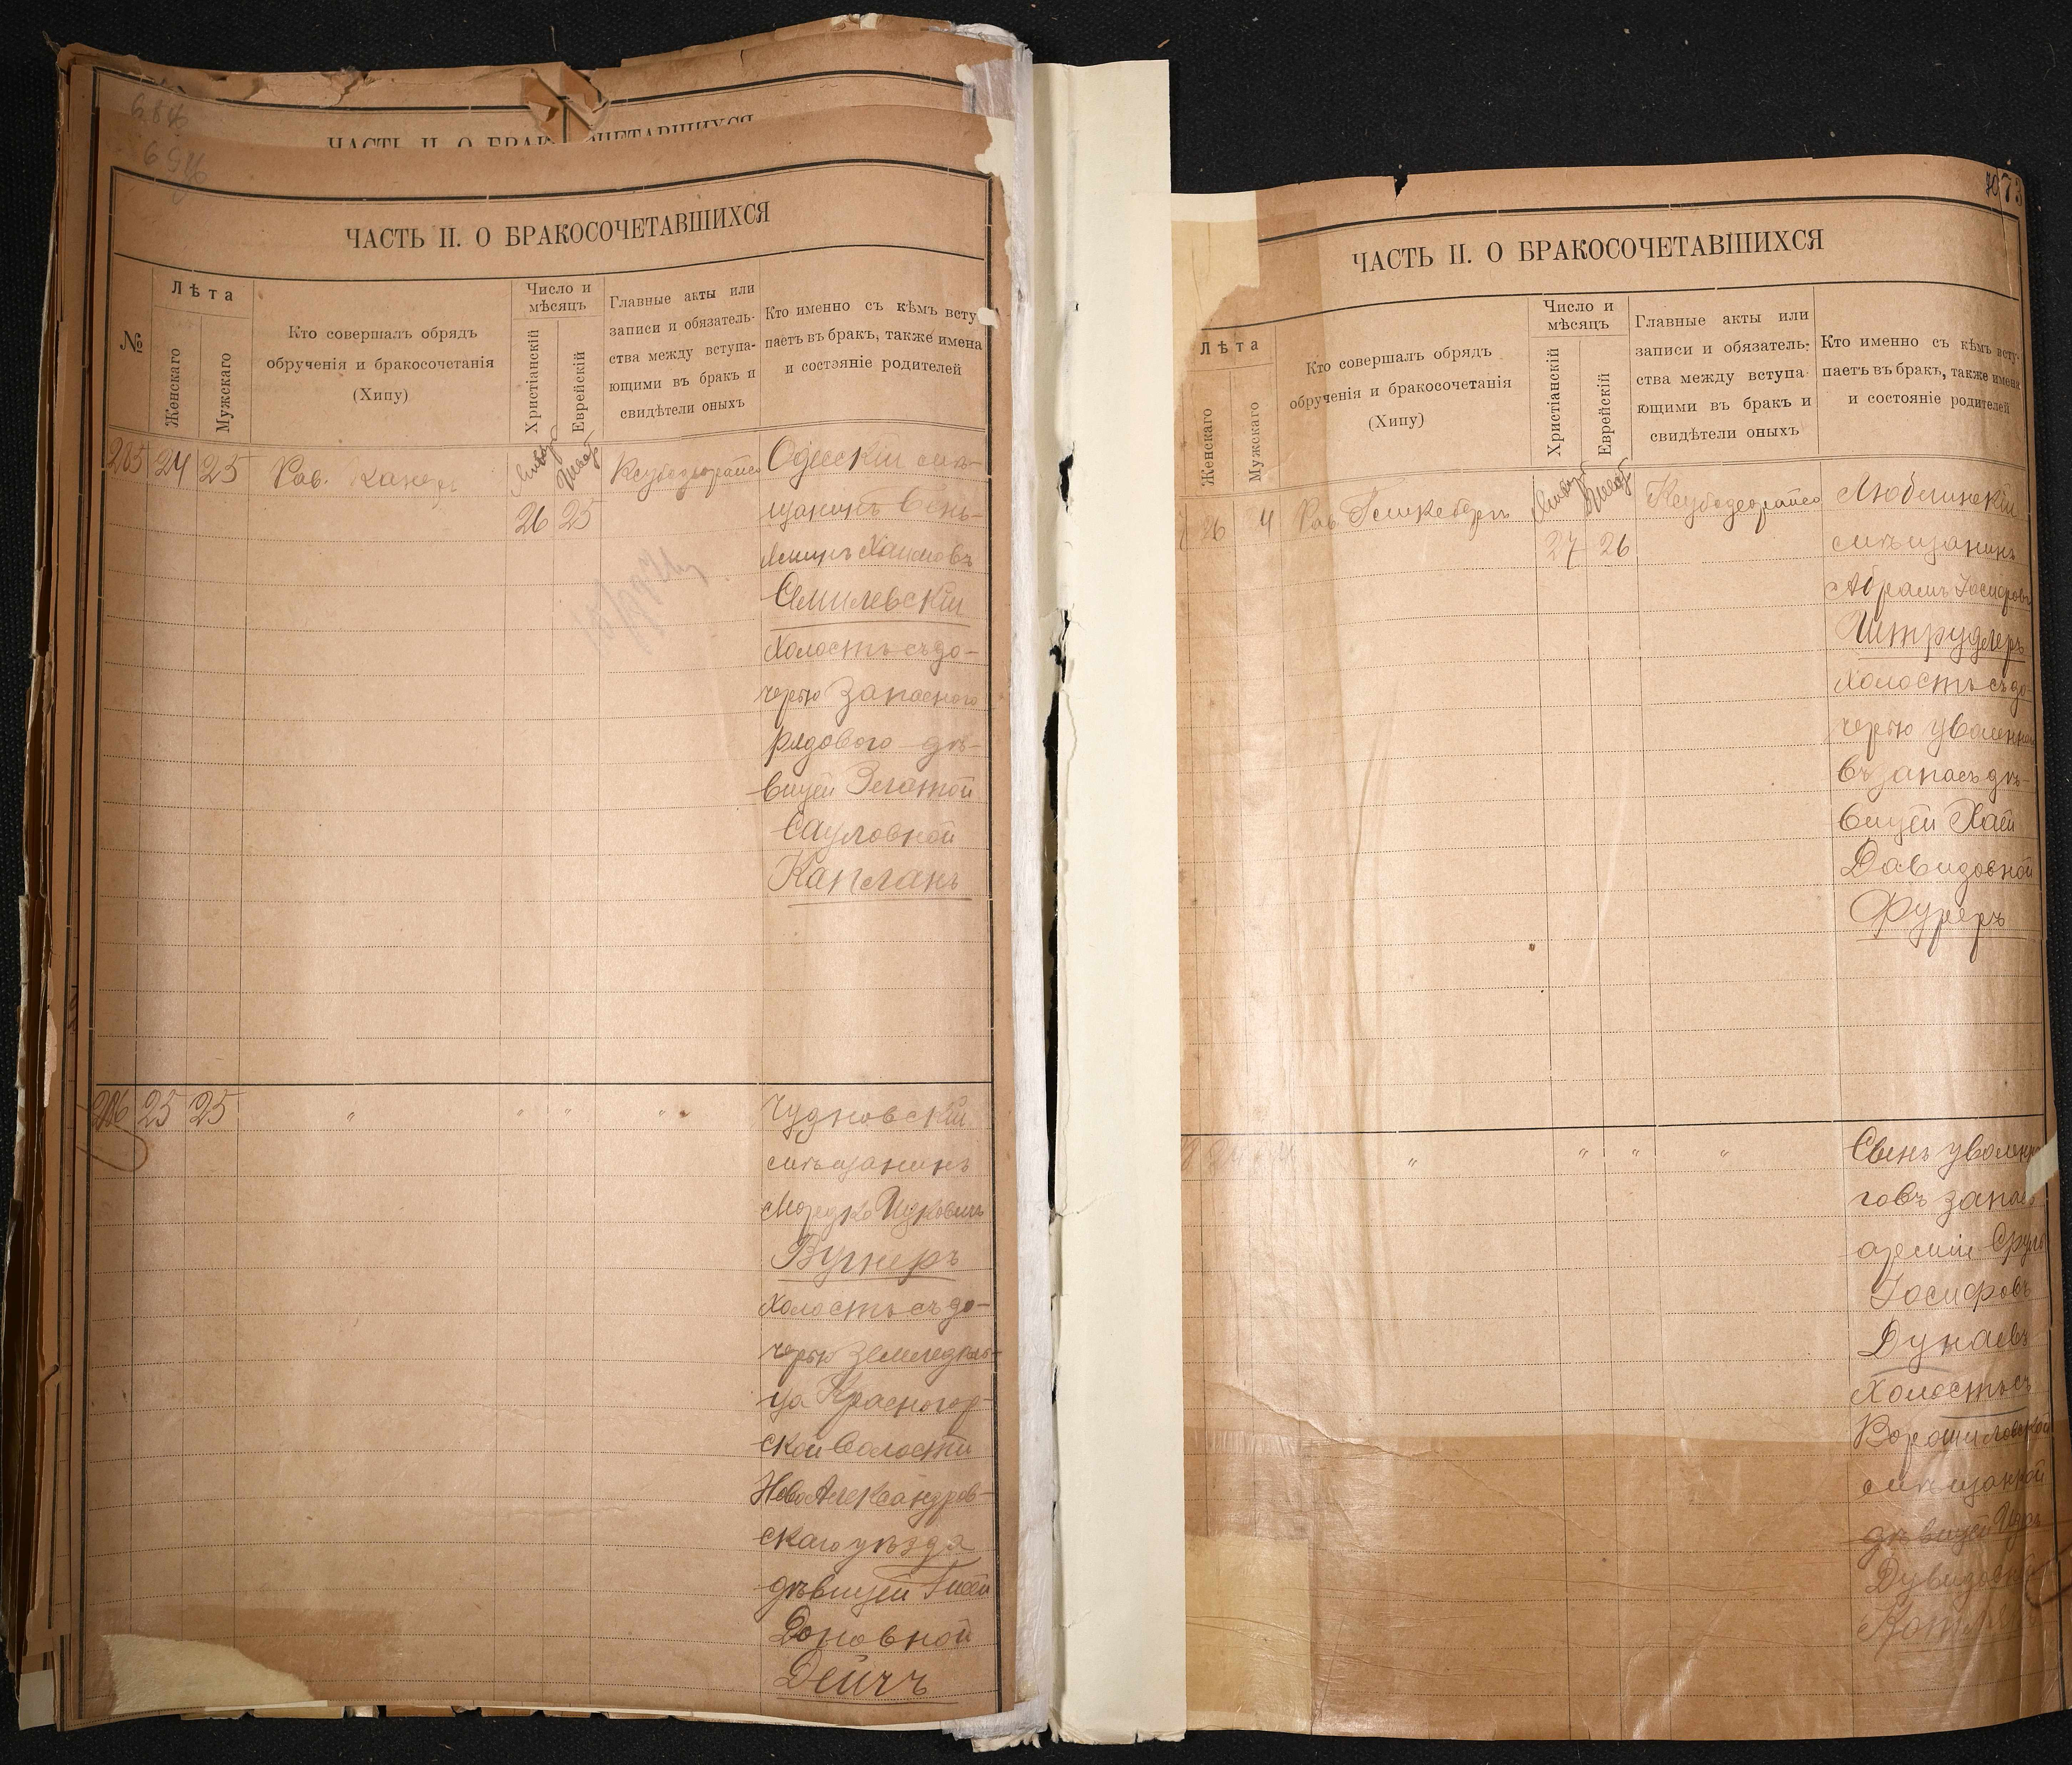 ЧАСТЬ II. О БРАКОСОЧЕТАВШИХСЯ
ЧАСТЬ II. О БРАКОСОЧЕТАВШИХСЯ
№
Лѣта
Женскаго
Мужскаго
Кто совершалъ обрядъ
обрученія и бракосочетанія
(Хипу)
Число и
мѣсяцъ
Христіанскій
Еврейскій
Главные акты или
записи и обязатель-
ства между вступа-
ющими въ бракъ и
свидѣтели оныхъ
Кто именно съ кѣмъ всту-
паетъ въ бракъ, также имена
и состояніе родителей
205 24 25 Рав.
Январь
26 25
Одесскій мѣ-
щанинъ Бень-
Хаимовъ
Семилевскій
холостъ съ до-
черью запасного
рядового дѣ-
вицей Златой
Сауловной
Капланъ
206 25 25 " " " "
Чудновскій
мѣщанинъ
Мордко Ицковичъ
Вугнеръ
холостъ съ до-
черью земледѣль-
ца Красногор-
ской волости
НовоАлександров-
скаго уѣзда
дѣвицей
Доновной
Дейчъ
73
ЧАСТЬ II. О БРАКОСОЧЕТАВШИХСЯ
Лѣта
Женскаго
Мужскаго
Кто совершалъ обрядъ
обрученія и бракосочетанія
(Хипу)
Число и
мѣсяцъ
Христіанскій
Еврейскій
Главные акты или
записи и обязатель-
ства между вступа-
ющими въ бракъ и
свидѣтели оныхъ
Кто именно съ кѣмъ всту-
паетъ въ бракъ, также имена
и состояніе родителей
26 24 Рав.
Январь
27 26
Люблинскій
мѣщанинъ
Абрамъ Іосифовъ
Штрудлеръ
холостъ съ до-
черью уволенна
въ запасъ дѣ-
вицей Хаей
Давидовной
Фуреръ
" " " "
Сынъ уволенна
говъ запасъ
арміи Сруль
Іосифовъ
Дунаевъ
Холостъ съ
Ворошиловской
мѣщанкой
дѣвицей
Дувидовной